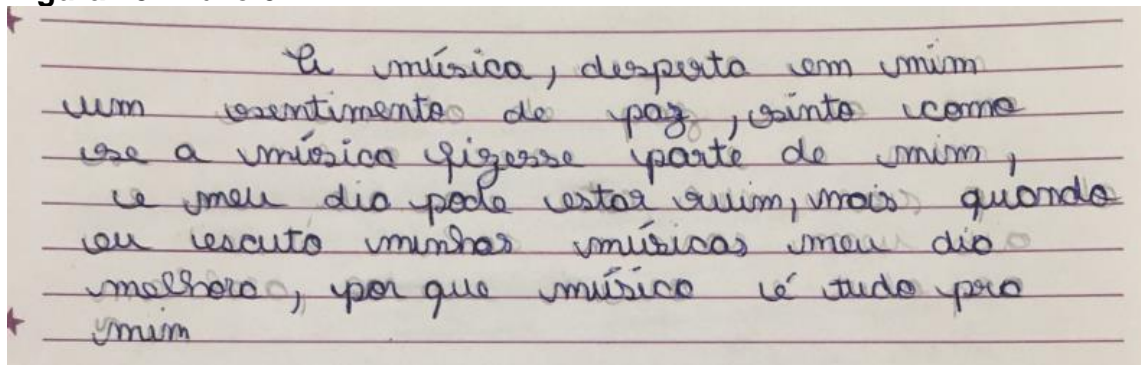 A música, desperta em mim
um sentimento de paz, sinto como
se a música fizesse parte de mim,
e meu dia pode estar ruim, mais quando
eu escuto minhas músicas meu dia
melhora, por que música é tudo pra
mim